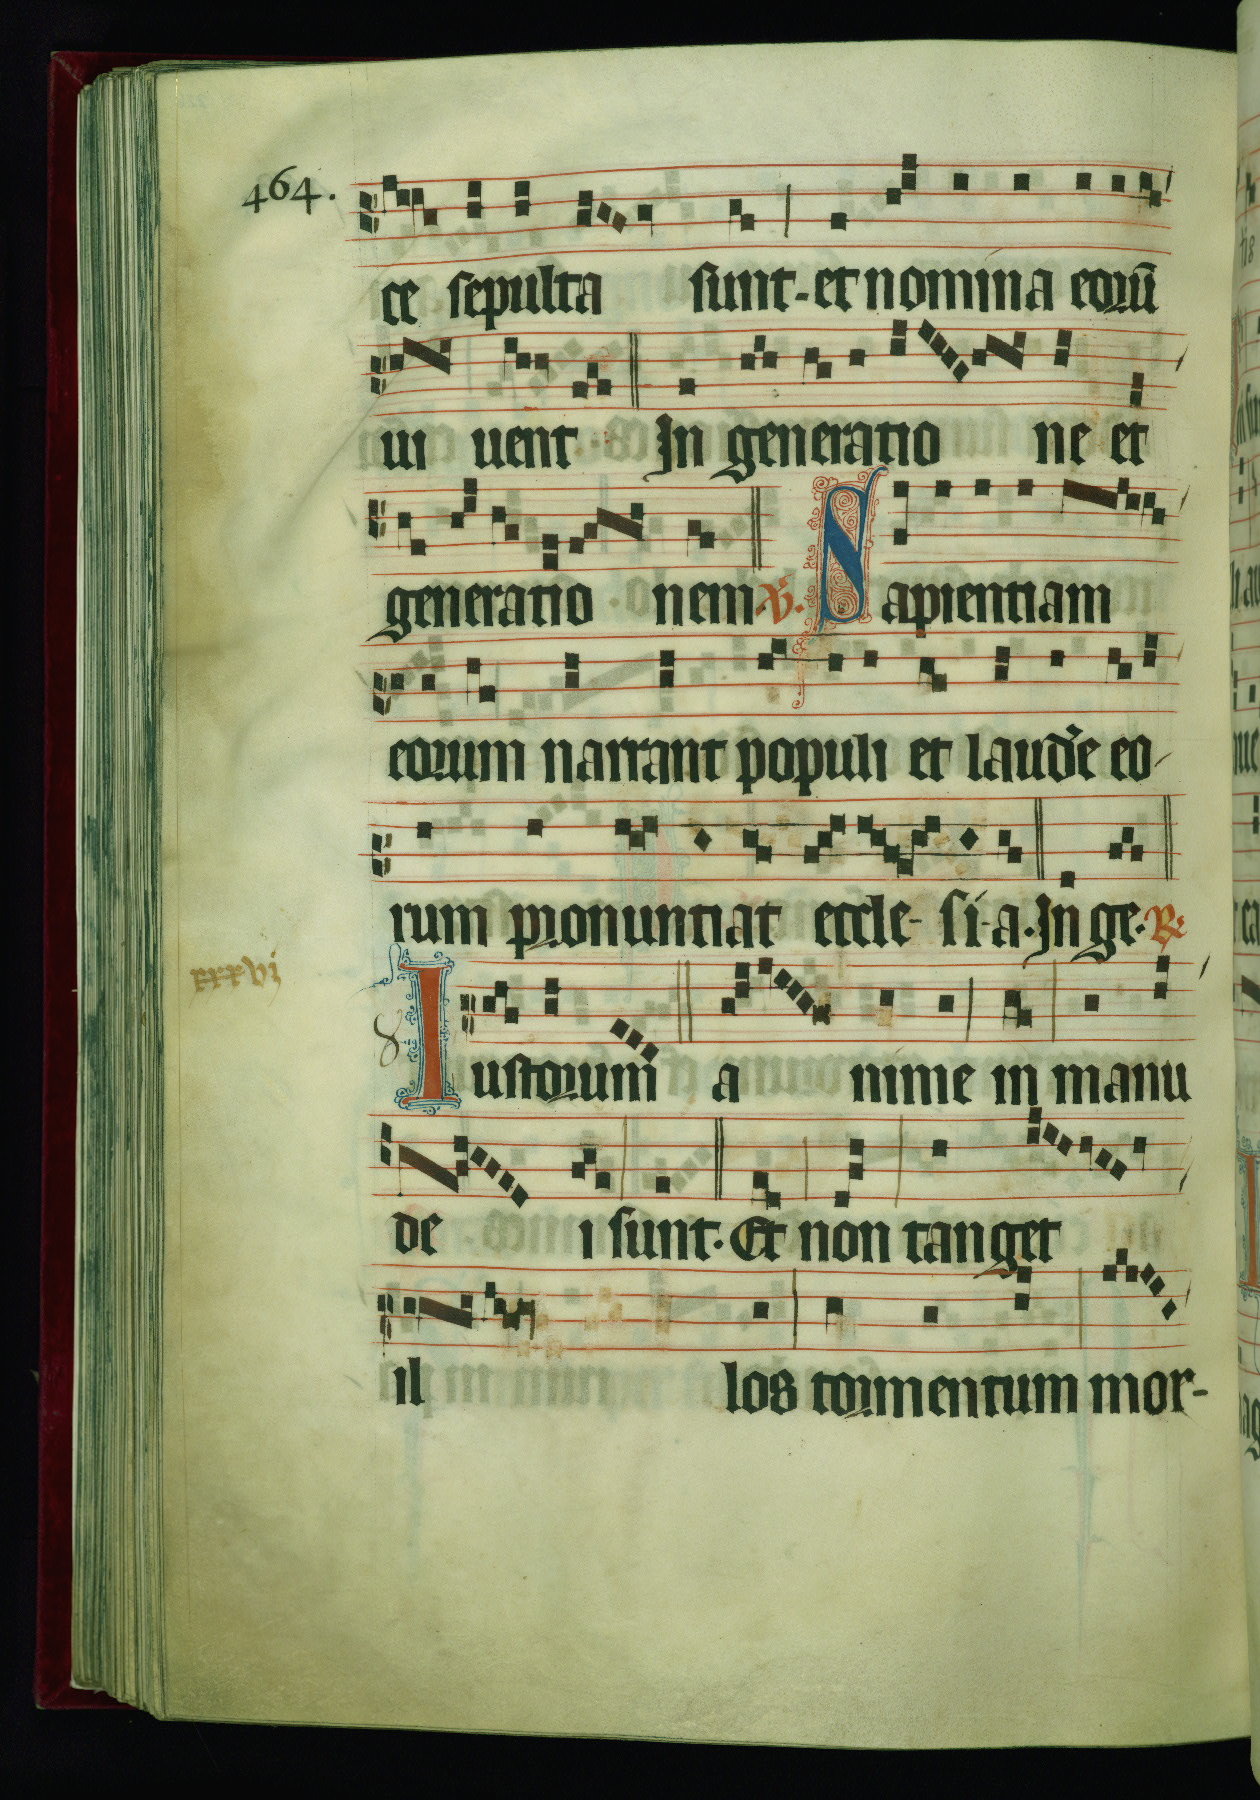 464.
ce sepulta sunt. et nomina eorū
ui uent. In generatio ne et
generatio nem. V. Sapientiam
eorum narrant populi et laudē eo
rum pronuntiat eccle- si-a. In ge. R.
xxxvi
8
Iustorum a nime in manu
de i sunt. Et non tanget
il los tormentum mor-